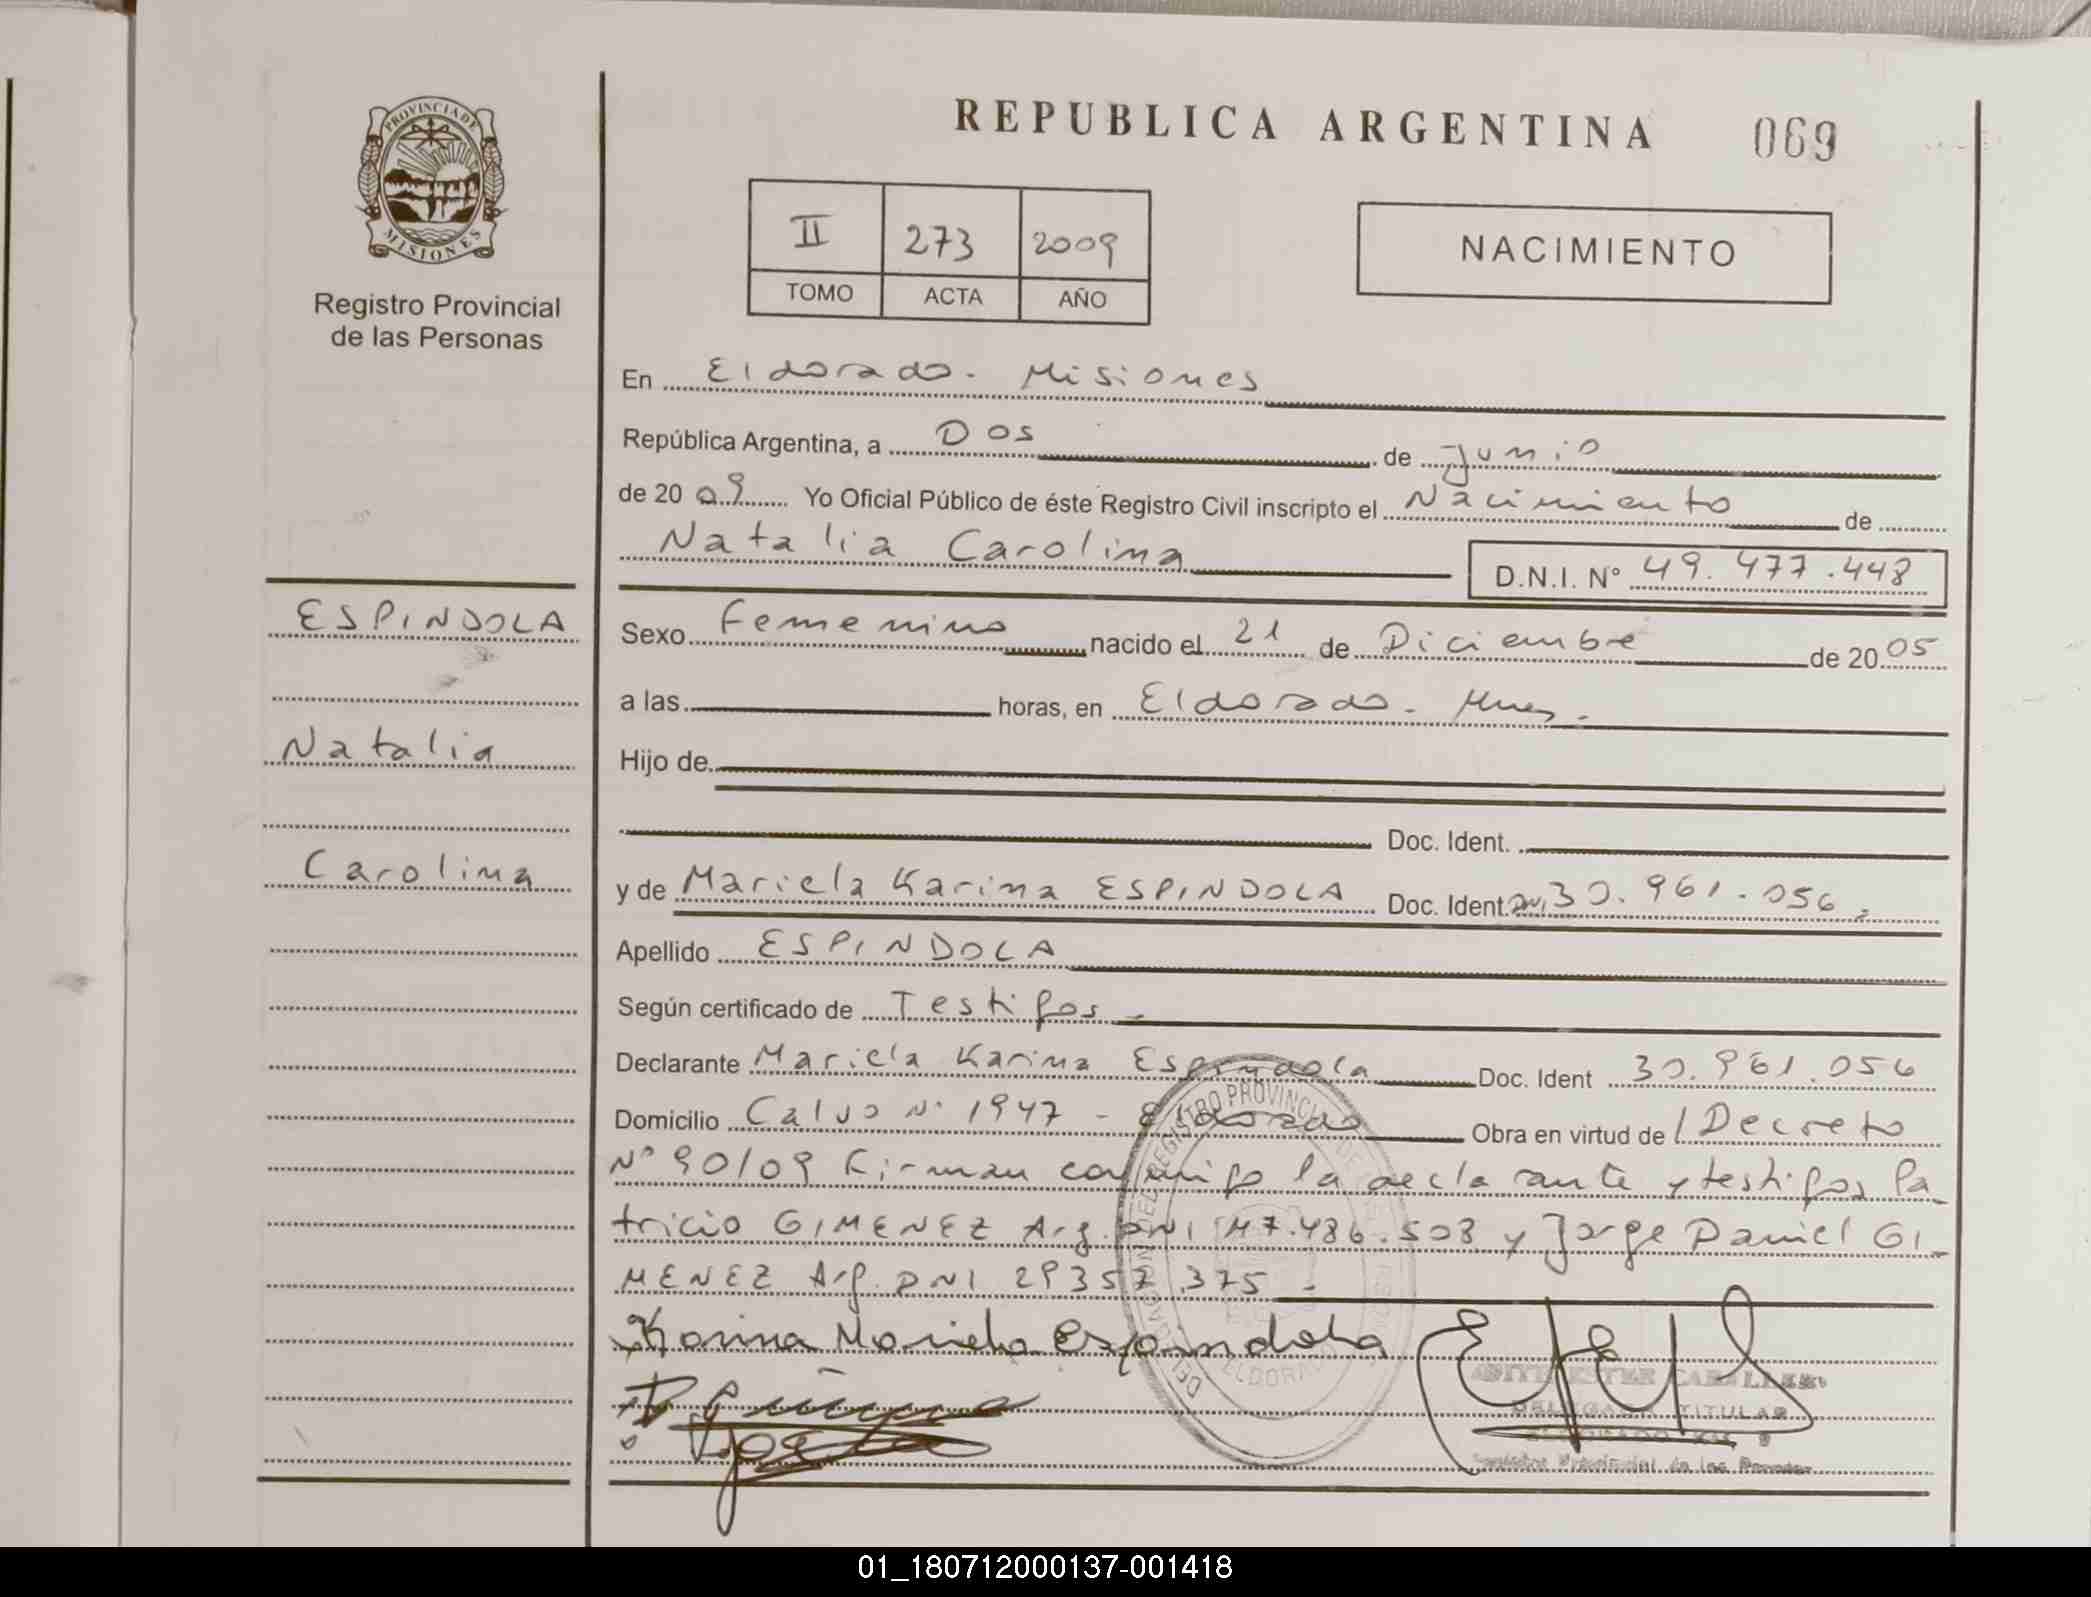 PROVINCIA DE
MISIONES
Registro Provincial
de las Personas
ESPINDOLA
Natalia
Carolina
REPUBLICA ARGENTINA 069
II 273 2009
TOMO ACTA AÑO
NACIMIENTO
En Eldorado. Misiones
República Argentina, a Dos de Junio
de 20 09 Yo Oficial Público de éste Registro Civil inscripto el Nacimiento de
Natalia Carolina D.N.I. Nº 49.477.448
Sexo Femenino nacido el 21 de Diciembre de 20 05
a las horas, en Eldorado. Mnes.
Hijo de
Doc. Ident.
y de Mariela Karina ESPINDOLA Doc. Ident. DNI 30.961.056
Apellido ESPINDOLA
Según certificado de Testigos -
Declarante Mariela Karina Espindola Doc. Ident 30.961.056
Domicilio Calvo Nº 1947 - Eldorado Obra en virtud de Decreto
Nº 90/09 Firman conmigo la declarante y testigos Pa-
tricio GIMENEZ Arg. DNI M7.486.508 y Jorge Daniel GI-
MENEZ Arg. DNI 29357.375 -
Karina Mariela Espindola
DELEGACION DEL REGISTRO PROVINCIAL DE
ELDORADO
DELEGADA TITULAR
ELDORADO KM. 9
Registro Provincial de las Personas
01_180712000137-001418